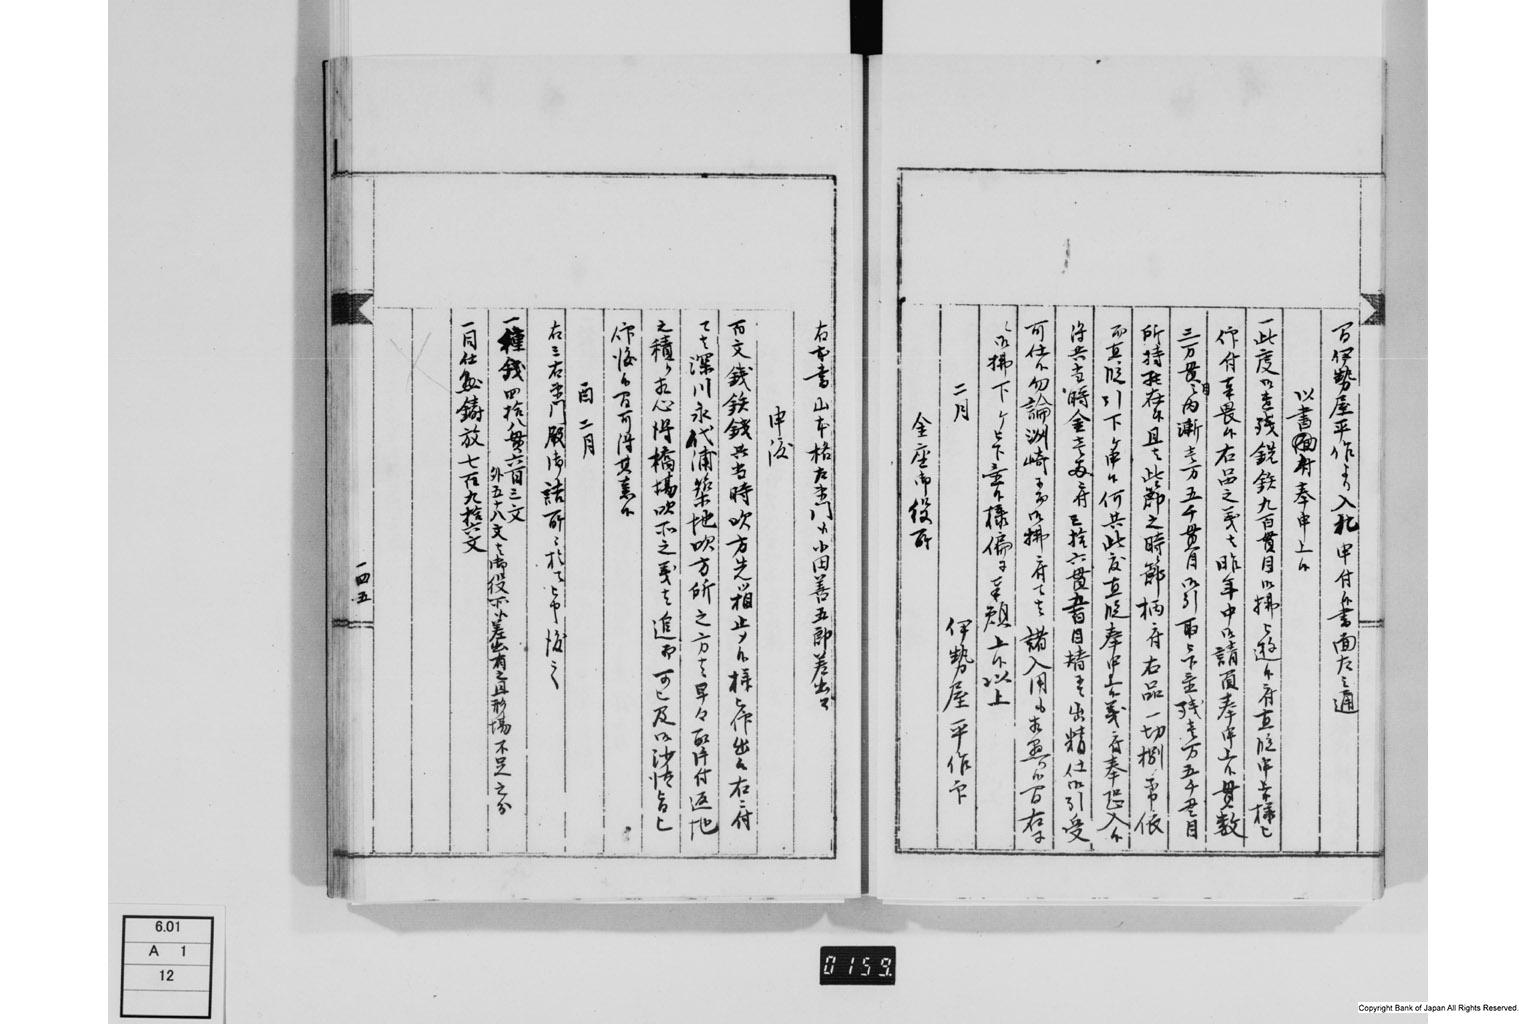 一 伊勢屋平作より入札申付候書面左之通
以書付奉申上候
一此度御遣残銑鉄九百貫目御払被遊候ニ付直段申上候様被
仰付奉畏候右品之義は昨年中御請負奉申上候貫数
三万貫目之内漸壱万五千貫目御引取残壱万五千貫目
所持罷在候且は此節之時節柄ニ付右品一切捌無依
而直段引下ケ申候何共此度直段奉申上候義ニ付奉恐入候
得共当時金壱両ニ付 拾六貫 目替 出精仕御引受
可仕候勿論洲崎 御払ニ付而は諸入用も相懸り候間右
御払下ケ 様偏ニ奉願上候以上
二月
伊勢屋平作印
金座御役所
右本書山本格左衛門より小田善五郎差出ス
申渡
百文銭鉄銭共当時吹方先相止メ候様被仰出候右ニ付
而は深川永代浦築地吹方所之方は早々取片付返地
之積り相心得橋場吹所之義は追而可被及御沙汰旨被
仰渡候間可得其意候
酉二月
右三右衛門殿御詰所ニ於て被申渡之
一種銭四拾八貫六百三文
外五十八文は御役所より差出有之且形場不足之分
一同仕立鋳放七百九拾六文
一四五
6.01
A 1
12
0159
Copyright Bank of Japan All Rights Reserved.